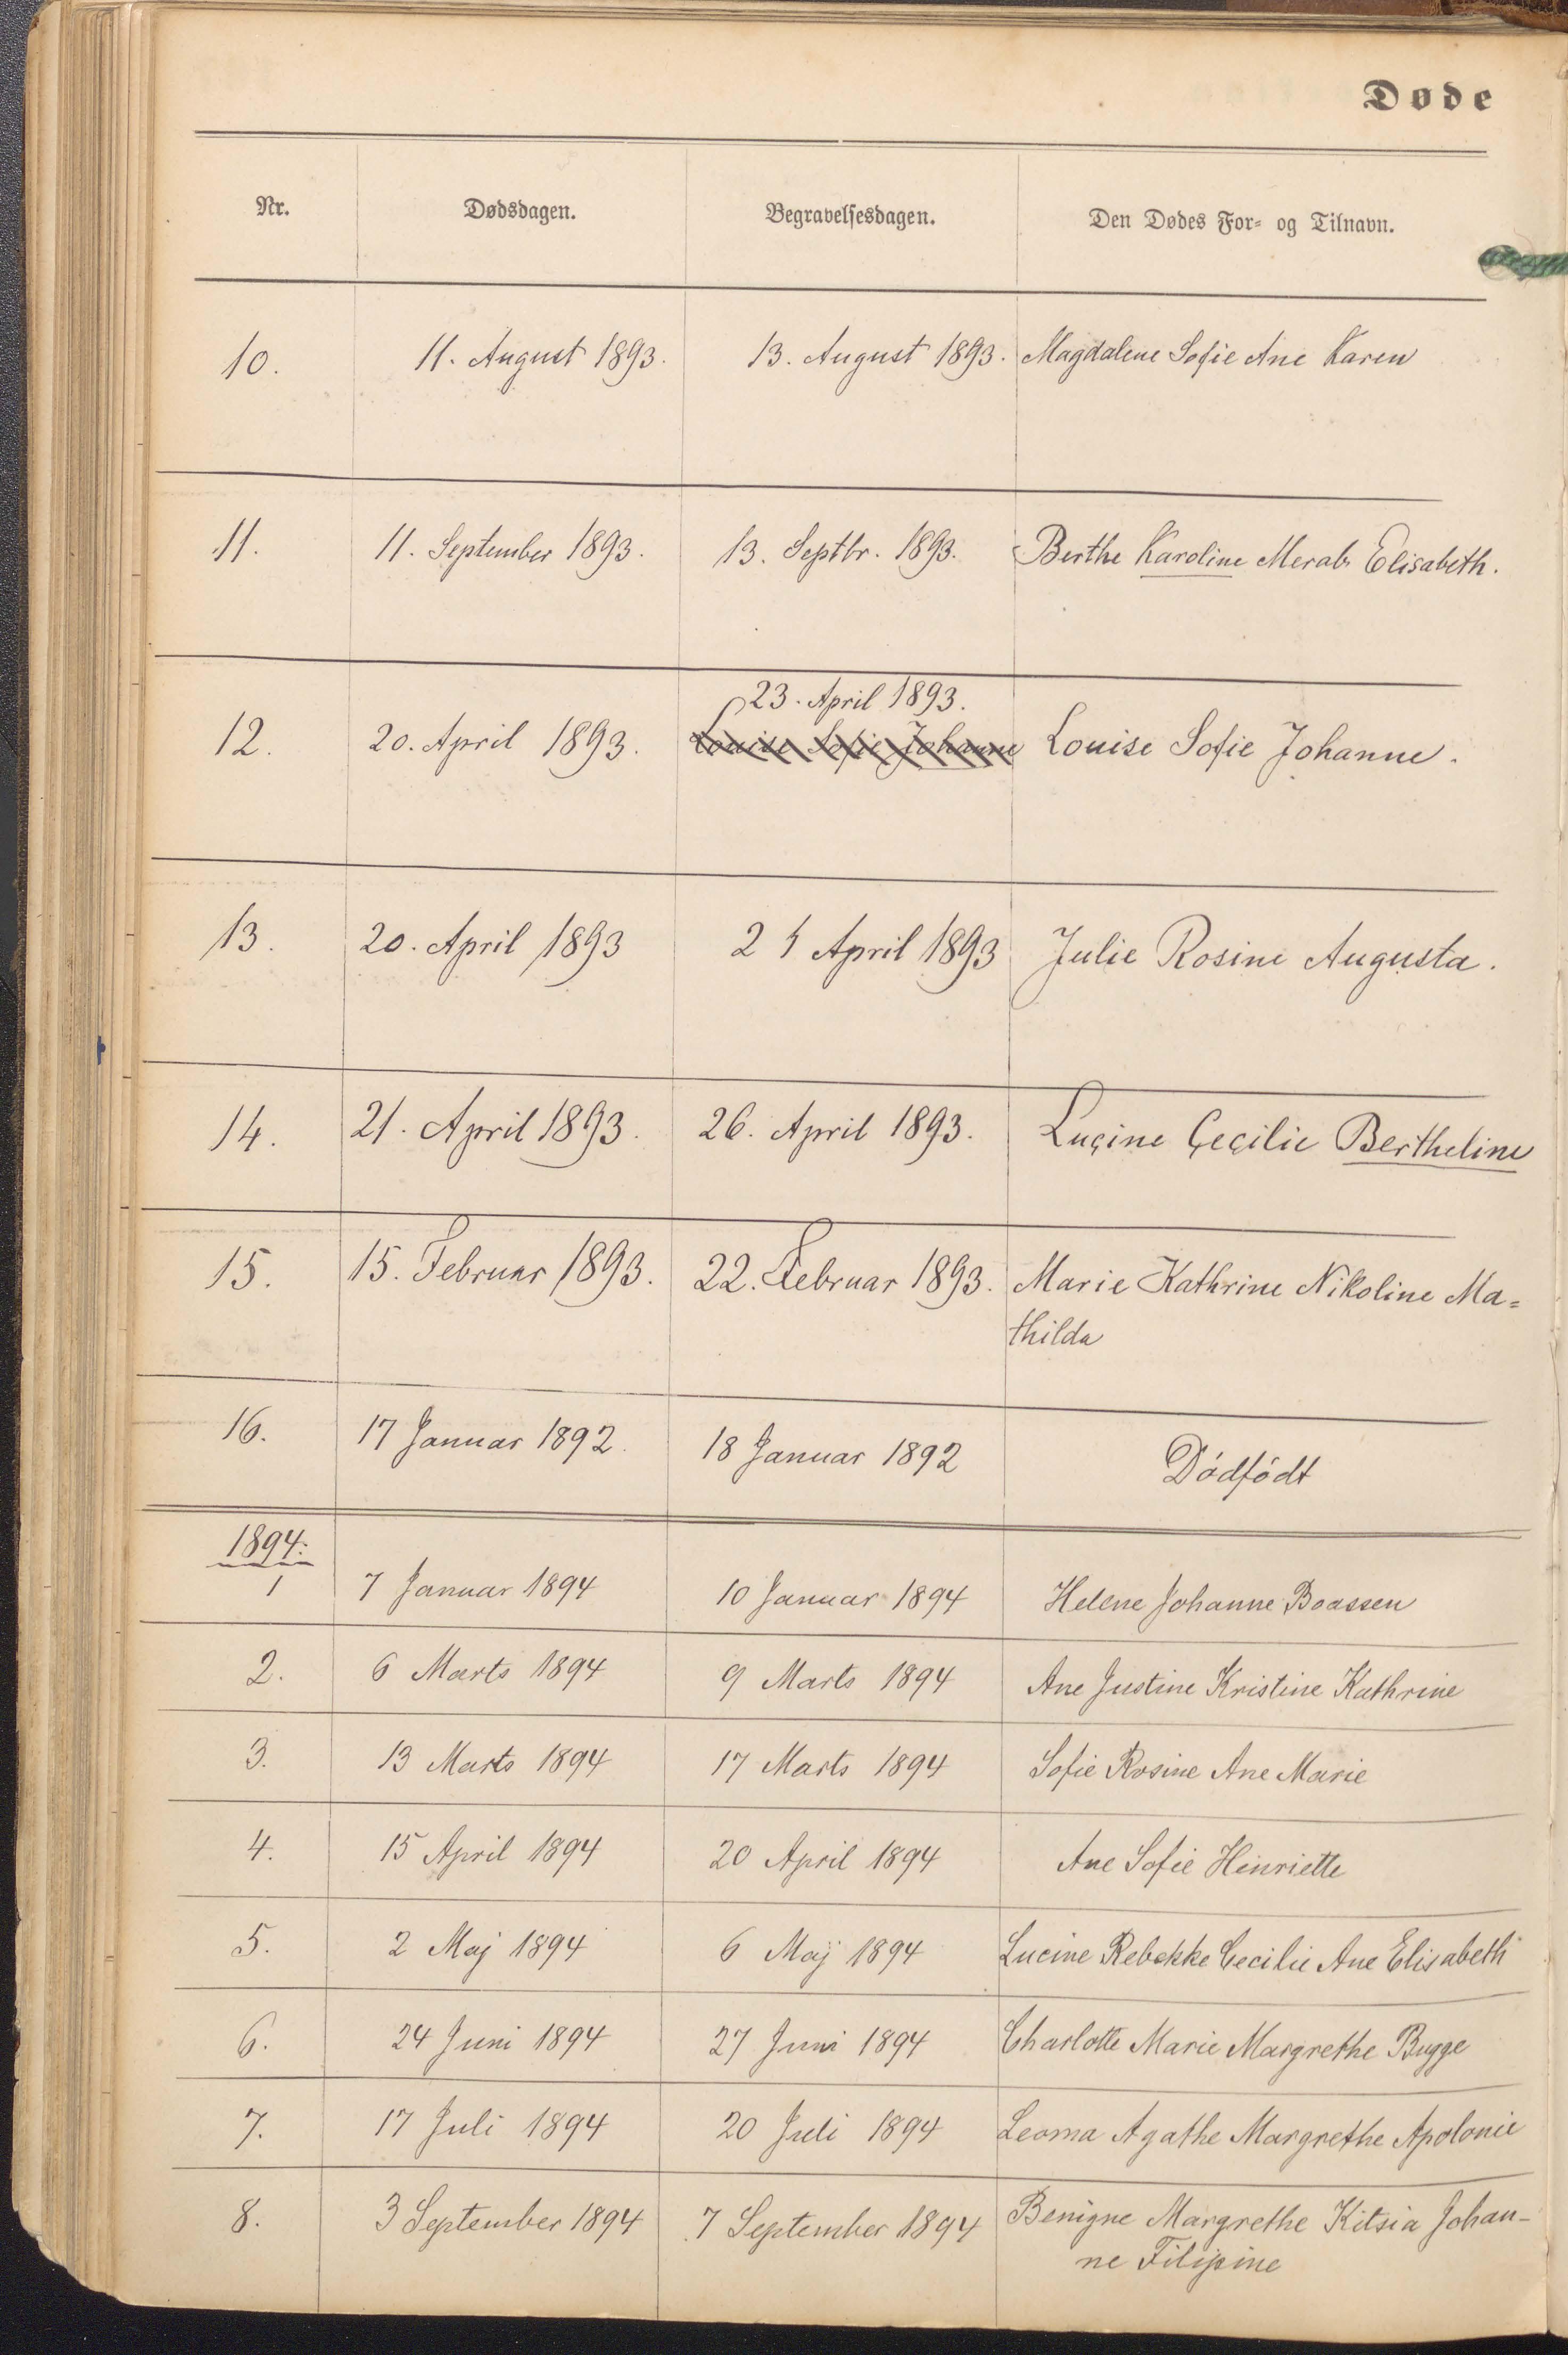 Døde
Nr. Dødsdagen. Begravelsesdagen. Den Dødes For- og Tilnavn.
10. 11. August 1893. 13. August 1893. Magdalene Sofie Ane Karen
11. 11. September 1893. 13. Septbr. 1893. Berthe Karoline Merab Elisabeth.
23. April 1893.
12. 20. April 1893. Louise Sofie Johanne Louise Sofie Johanne.
13. 20. April 1893 24 April 1893 Julie Rosine Augusta.
14. 21. April 1893. 26. April 1893. Lucine Cecilie Bertheline
15. 15. Februar 1893. 22. Februar 1893. Marie Kathrine Nikoline Ma=
thilda
16. 17 Januar 1892. 18 Januar 1892 Dódfódt
1894:
1 7 Januar 1894 10 Januar 1894 Helene Johanne Boassen
2. 6 Marts 1894 9 Marts 1894 Ane Justine Kristine Kathrine
3. 13 Marts 1894 17 Marts 1894 Sofie Rosine Ane Marie
4. 15 April 1894 20 April 1894 Ane Sofie Henriette
5. 2 Maj 1894 6 Maj 1894 Lucine Rebekke Cecilie Ane Elisabeth
6. 24 Juni 1894 27 Juni 1894 Charlotte Marie Margrethe Bugge
7. 17 Juli 1894 20 Juli 1894 Leoma Agathe Margrethe Apolonie
8. 3 September 1894 7 September 1894 Benigne Margrethe Kitsia Johan-
ne Filipine